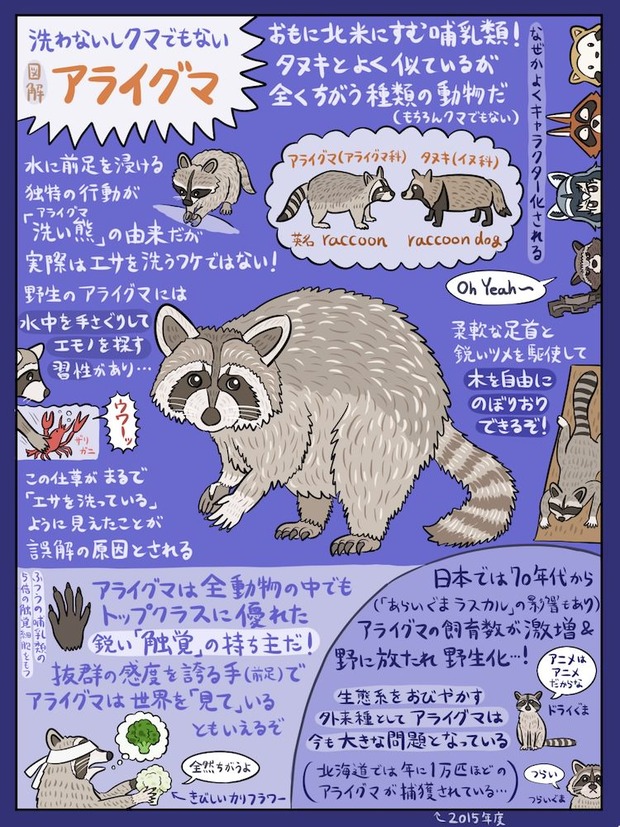 洗わないしクマでもない
図解
アライグマ
おもに北米にすむ哺乳類！
タヌキとよく似ているが
全くちがう種類の動物だ
(もちろんクマでもない)
なぜかよくキャラクター化される
アライグマ(アライグマ科)
タヌキ(イヌ科)
英名 raccoon
raccoon dog
Oh Yeah〜
水に前足を浸ける
独特の行動が
アライグマ
「洗い熊」の由来だが
実際はエサを洗うワケではない！
野生のアライグマには
水中を手さぐりして
エモノを探す
習性があり…
ウワーッ
ザリ
ガニ
この仕草がまるで
「エサを洗っている」
ように見えたことが
誤解の原因とされる
柔軟な足首と
鋭いツメを駆使して
木を自由に
のぼりおり
できるぞ！
ふつうの哺乳類の
5倍の触覚細胞をもつ
アライグマは全動物の中でも
トップクラスに優れた
鋭い「触覚」の持ち主だ！
抜群の感度を誇る手(前足)で
アライグマは世界を「見て」いる
ともいえるぞ
全然ちがうよ
←きびしいカリフラワー
日本では70年代から
(「あらいぐまラスカル」の影響もあり)
アライグマの飼育数が激増&
野に放たれ野生化…！
アニメは
アニメ
だからな
ドライぐま
生態系をおびやかす
外来種としてアライグマは
今も大きな問題となっている
(北海道では年に1万匹ほどの
アライグマが捕獲されている…)
つらい
つらいぐま
←2015年度